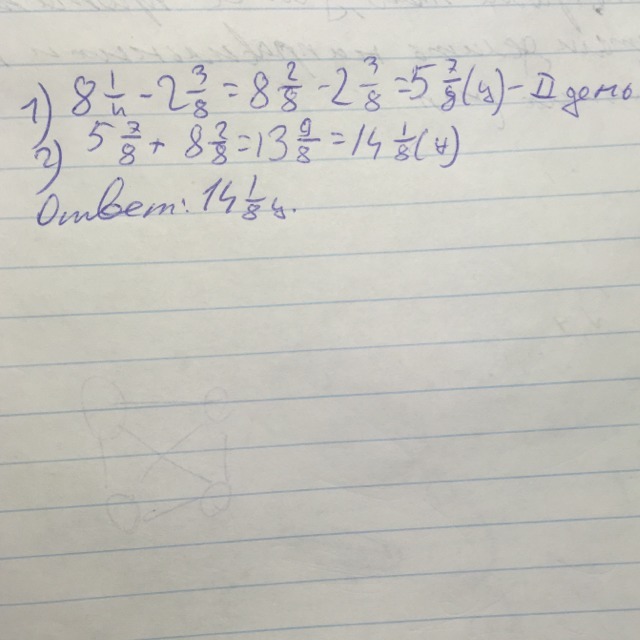 1) 8 1/4 - 2 3/8 = 8 2/8 - 2 3/8 = 5 7/8 (ц) - II день
2) 5 7/8 + 8 2/8 = 13 9/8 = 14 1/8 (ц)
Ответ: 14 1/8 ц.